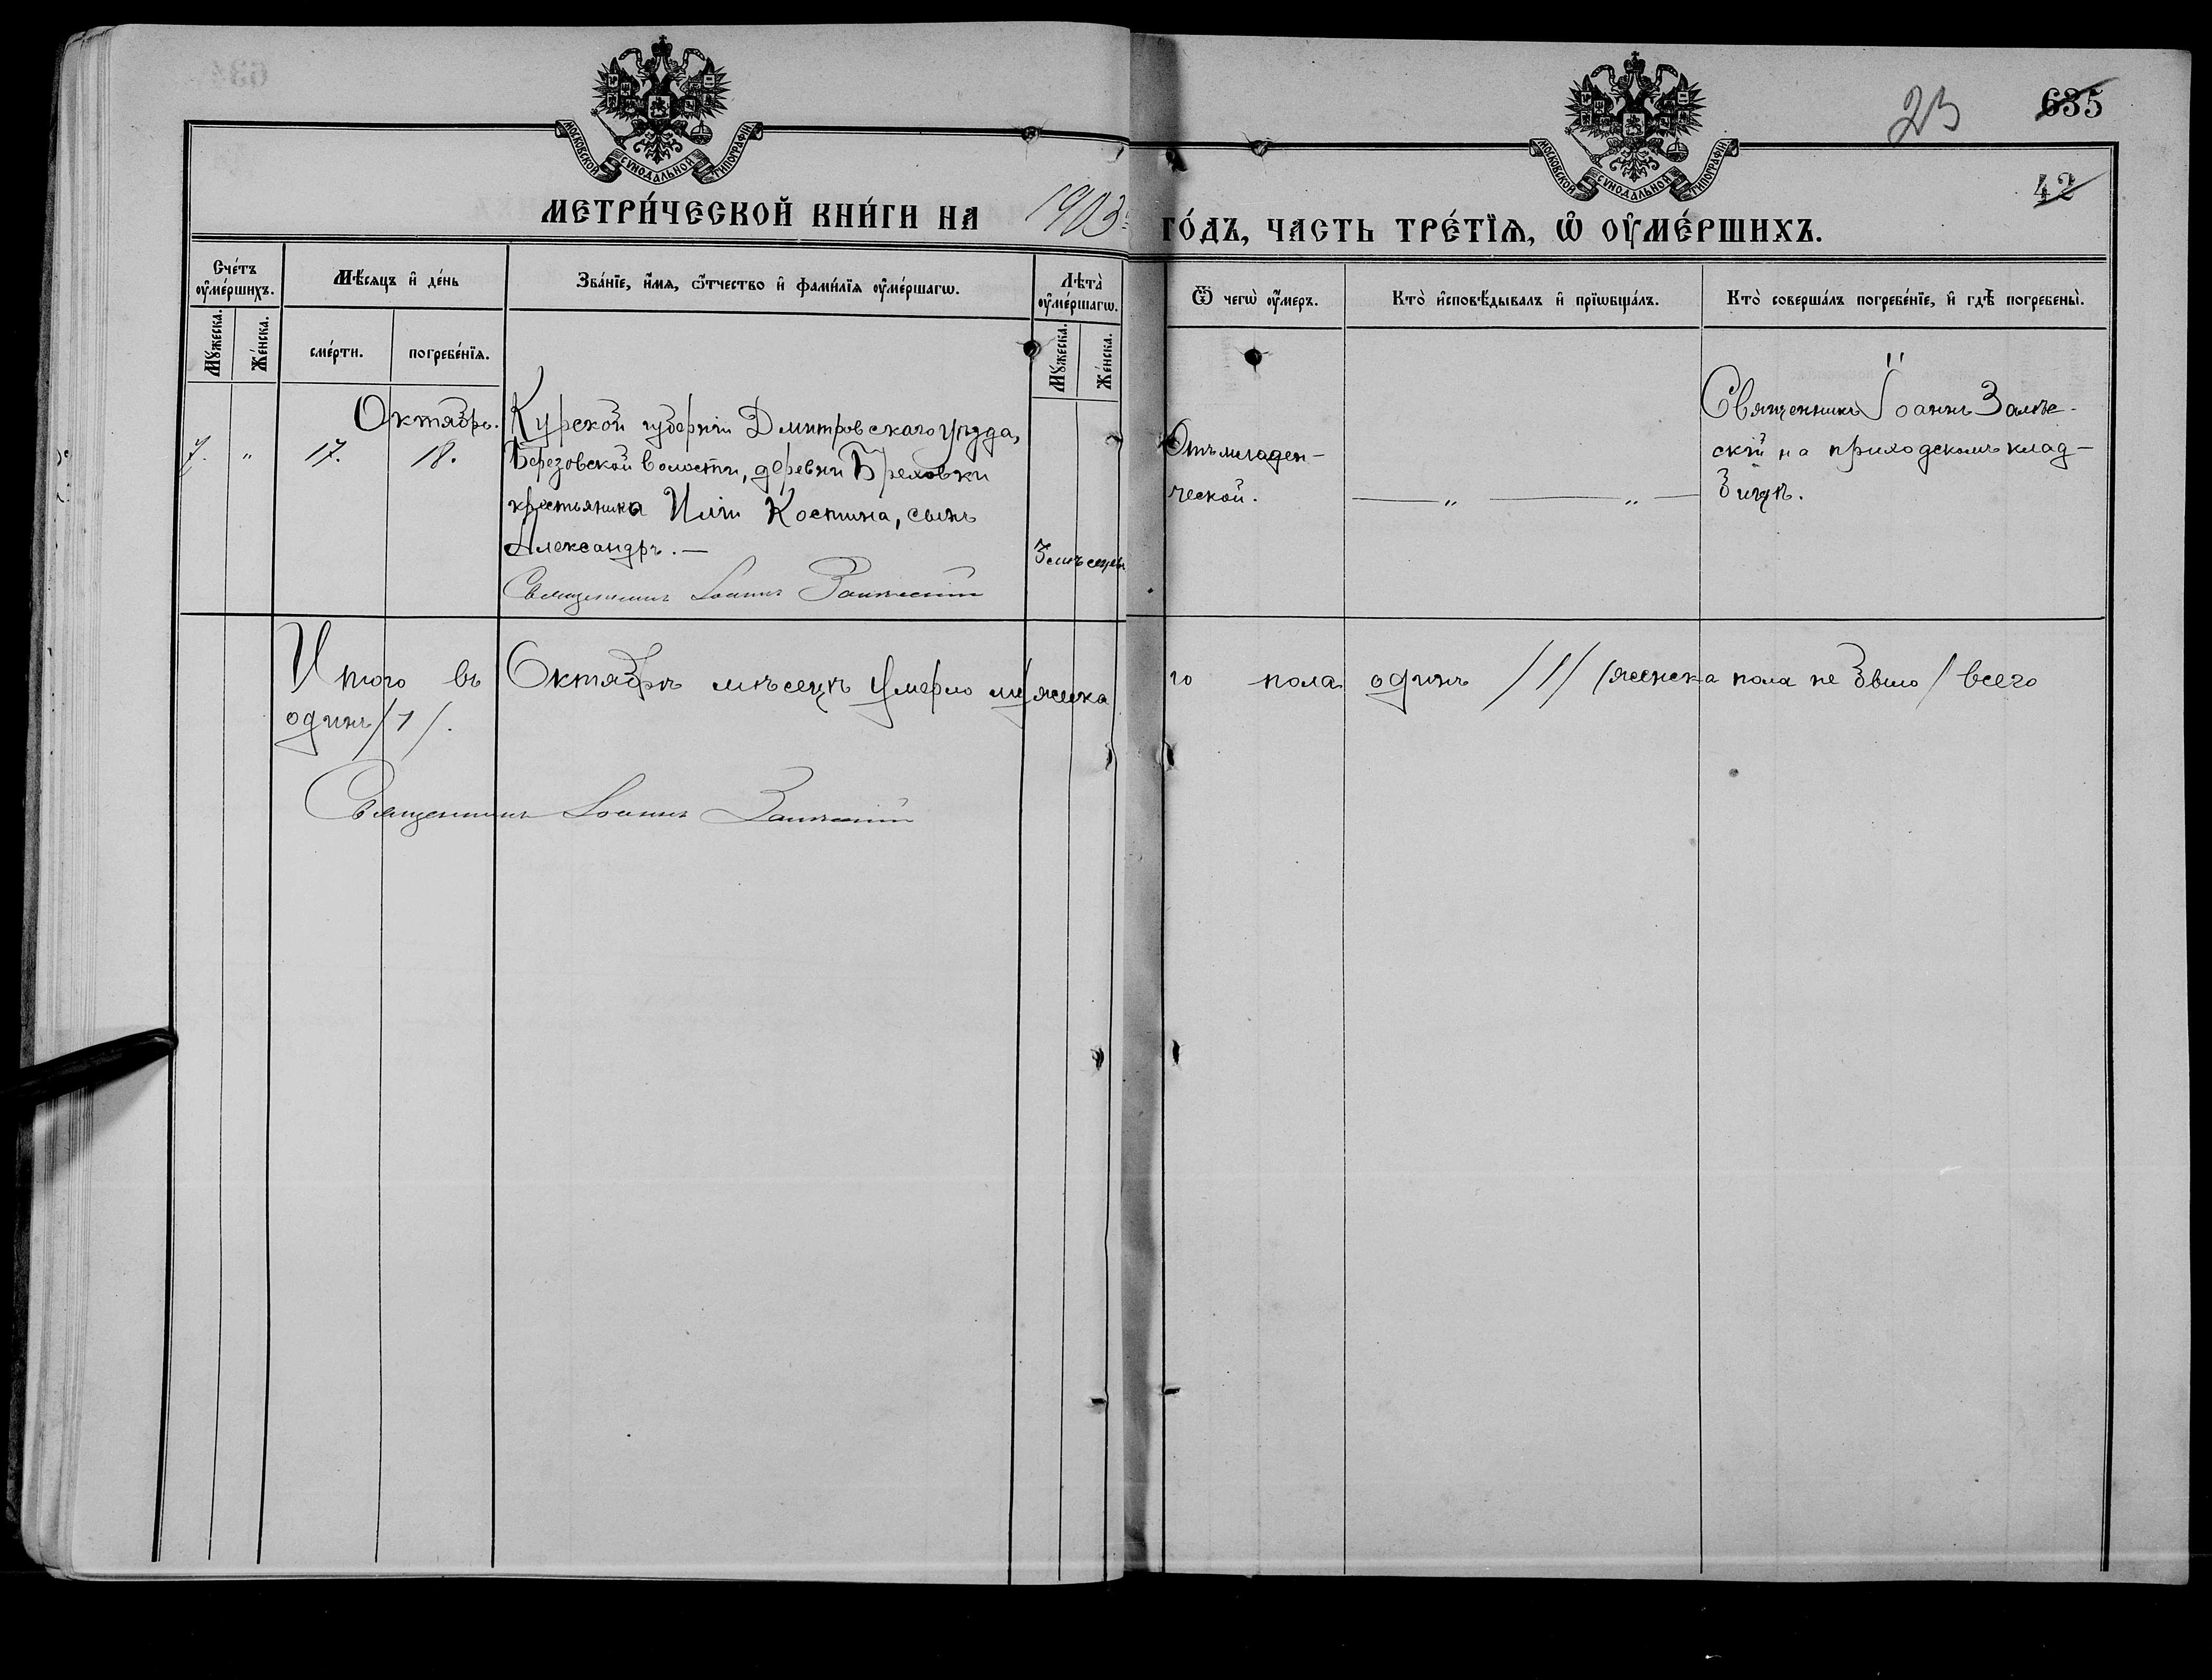 635
23
42
МОСКОВСКОЙ СУНОДАЛЬНОЙ ТИПОГРАФІИ
МОСКОВСКОЙ СУНОДАЛЬНОЙ ТИПОГРАФІИ
МЕТРИ́ЧЕСКОЙ КНИ́ГИ НА 1903 ГО́ДЪ, ЧАСТЬ ТРЕ́ТІѦ, Ѡ҆ ОУ҆МЕ́РШИХЪ.
Сче́тъ оу҆ме́ршихъ.
Мꙋ́жеска.
Же́нска.
Мѣ́сяцъ и҆ де́нь
сме́рти.
погребе́нїѧ.
Зва́нїе, и҆́мѧ, ѻ҆́тчество и҆ фами́лїѧ оу҆ме́ршагѡ.
Лѣта̀ оу҆ме́ршагѡ.
Мꙋ́жеска.
Же́нска.
Ѿ чегѡ̀ оу҆́меръ.
Кто̀ и҆сповѣ́дывалъ и҆ прїѡбща́лъ.
Кто̀ соверша́лъ погребе́нїе, и҆ гдѣ̀ погребены̀.
Октябрь.
7. " 17. 18.
Курской губерніи Дмитровскаго уѣзда,
Березовской волости, деревни Бреховки
крестьянина Иліи Костина, сынъ
Александръ. —
3 мѣсяцы
Священникъ Іоаннъ Залѣскій
Отъ младен-
ческой.
— " — " —
Священникъ Іоаннъ Залѣ-
скій на приходскомъ клад-
бищѣ.
Итого въ Октябрѣ мѣсяцѣ умерло мужска
го пола одинъ /1/ /женска пола не было/ всего
одинъ /1/.
Священникъ Іоаннъ Залѣскій